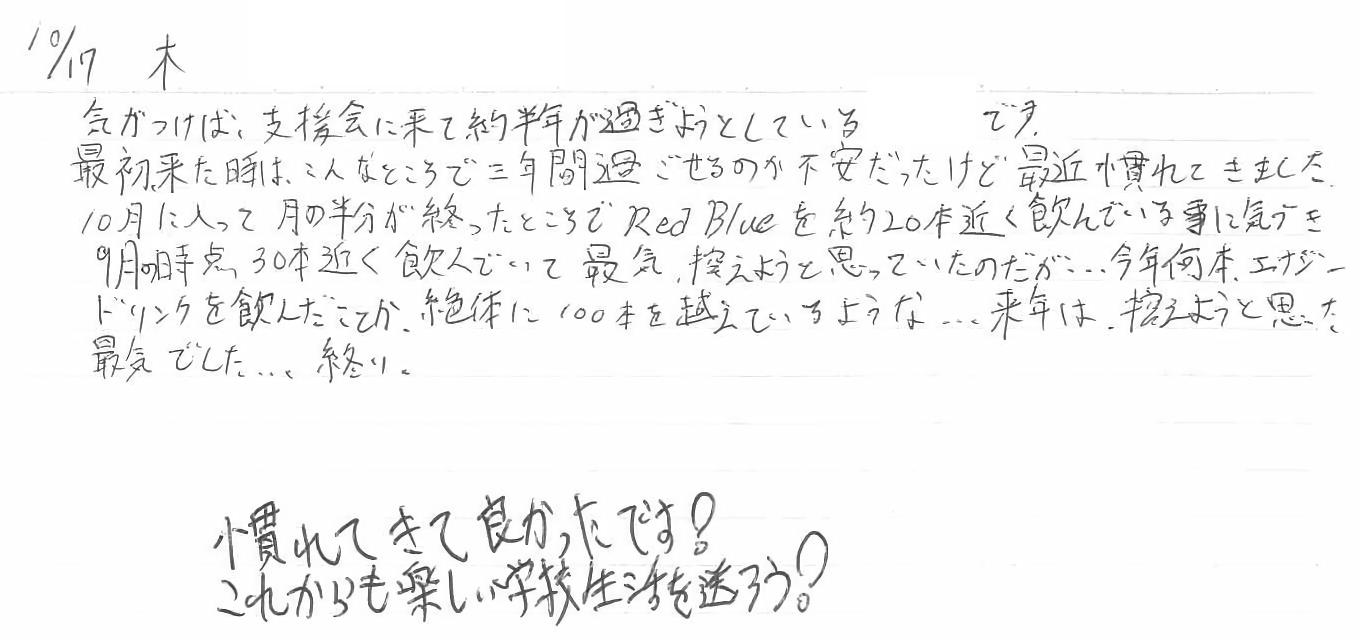 10/17 木
気がつけば、支援会に来て約半年が過ぎようとしている です。
最初、来た時は、こんなところで三年間過ごせるのか不安だったけど最近慣れてきました。
10月に入って月の半分が終ったところでRed Blueを約20本近く飲んでいる事に気づき
9月の時点、30本近く飲んでいて最気、控えようと思っていたのだが...今年何本、エナジー
ドリンクを飲んだことか、絶体に100本を越えているような...来年は、控えようと思った
最気でした...、終り。
慣れてきて良かったです!
これからも楽しい学校生活を送ろう!